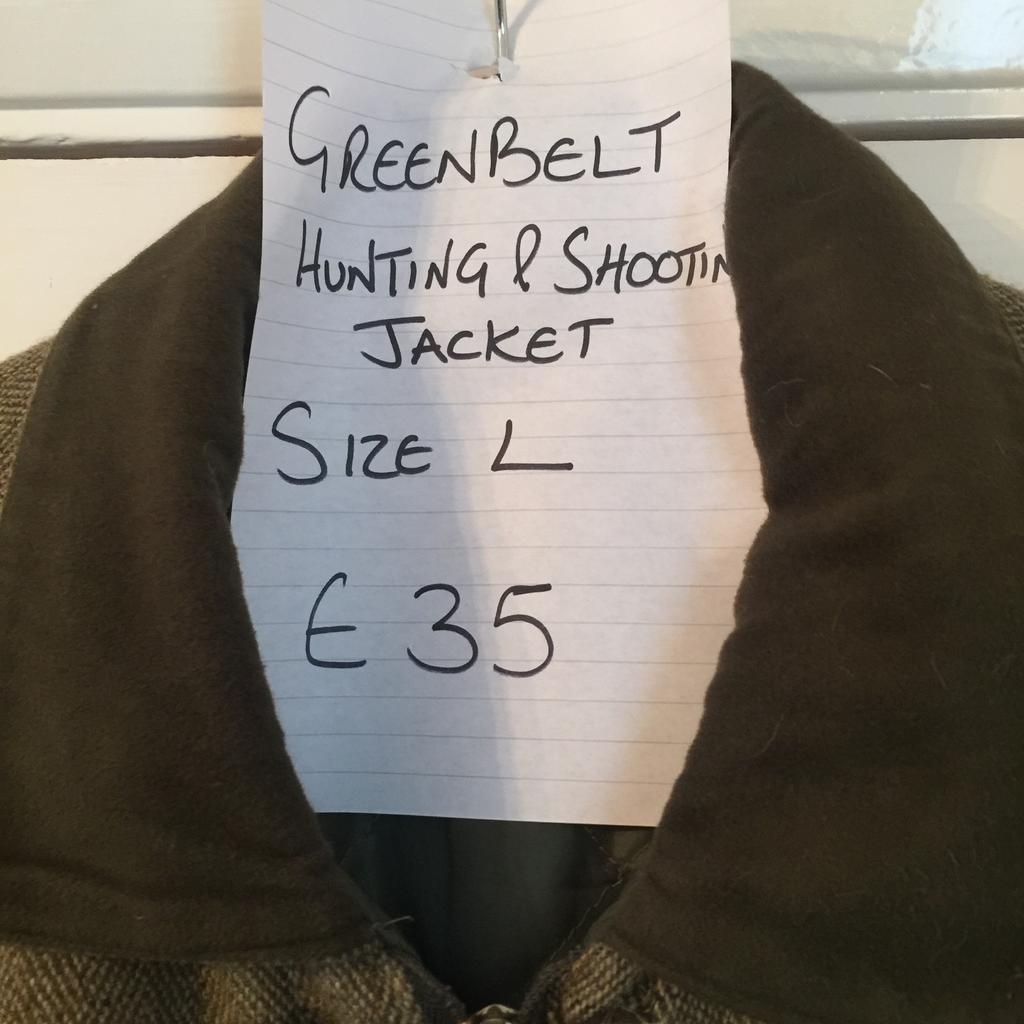 GREENBELT
HUNTING & SHOOTIN
JACKET
SIZE L
£35